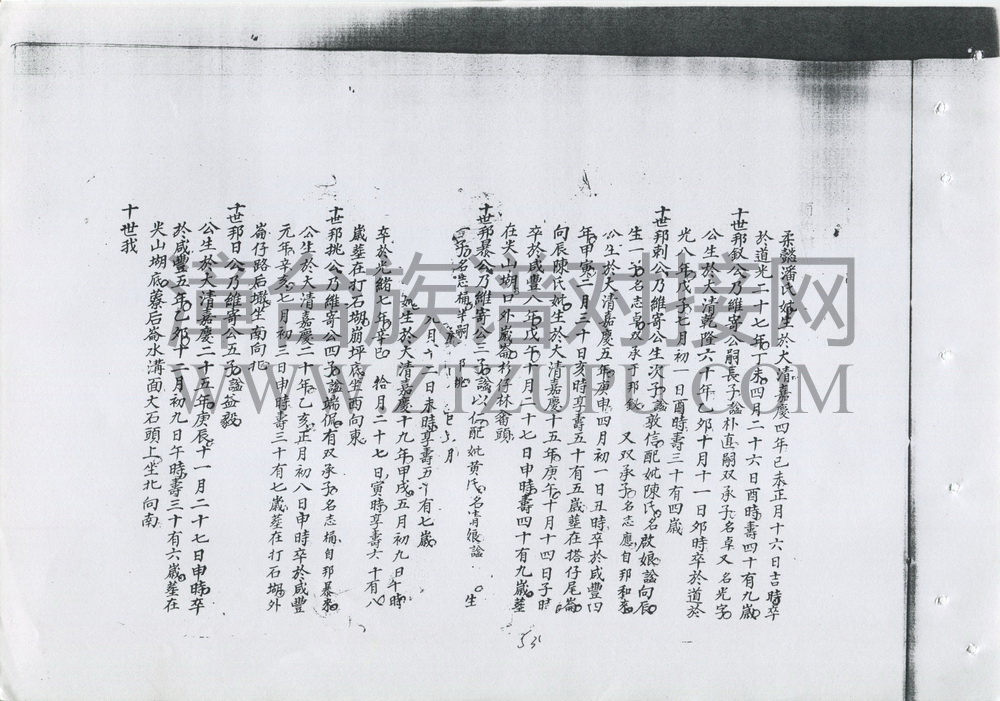 柔懿潘氏妣生於大清嘉慶四年己未正月十六日吉時卒
於道光二十七年丁未四月二十六日酉時壽四十有九歲
十世邦釵公乃維寄公嗣長子諡朴直嗣双承子名卓又名光字
公生於大清乾隆六十年乙卯十月十一日卯時卒於道於
光八年戊子七月初一日酉時壽三十有四歲
十世邦剌公乃維寄公生次子諡敦信配妣陳氏名啟娘諡向辰
生一子名志卓双承于邦釵 又双承子名志應自邦和來
公生於大清嘉慶五年庚申四月初一日丑時卒於咸豐四
年甲寅二月三十日亥時享壽五十有五歲塟在搭仔尾崙
向辰陳氏妣生於大清嘉慶十五年庚午十月十四日子時
卒於咸豐八年戊午十月二十七日申時壽四十有九歲塟
在尖山湖口外崁崙杉仔林番頭
十世邦暴公乃維寄公三子諡以仁配妣黃氏名富娘諡 生
子名志桶
九月十二日未時享壽五十有七歲
妣生於大清嘉慶十九年甲戌五月初九日午時
卒於光緒七年辛巳 拾月二十七日寅時享壽六十有八
歲塟在打石堋崩坪底坐西向東
十世邦挑公乃維寄公四子諡端侃有双承子名志桶自邦暴來
公生於大清嘉慶二十年乙亥正月初八日申時卒於咸豐
元年辛亥七月初三日申時壽三十有七歲塟在打石堋外
崙仔路后壠坐南向北
十世邦日公乃維寄公五子諡益毅
公生於大清嘉慶二十五年庚辰十一月二十七日申時卒
於咸豐五年乙卯十一月初九日午時壽三十有六歲塟在
尖山湖底藔后崙水溝面大石頭上坐北向南
十世我
53
章台族譜对接网
WWW.YIZUPU.COM